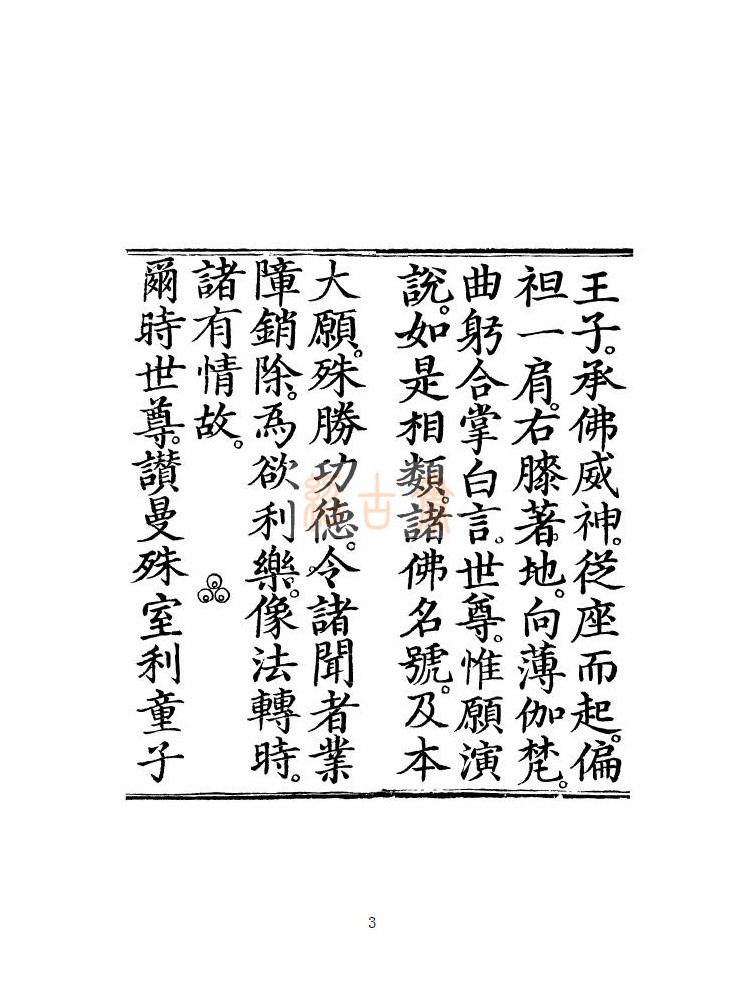 王子。承佛威神。從座而起。偏
袒一肩。右膝著地。向薄伽梵。
曲躬合掌白言。世尊。惟願演
說。如是相類。諸佛名號。及本
大願。殊勝功德。令諸聞者業
障銷除。爲欲利樂。像法轉時。
諸有情故。
爾時世尊。讚曼殊室利童子
3